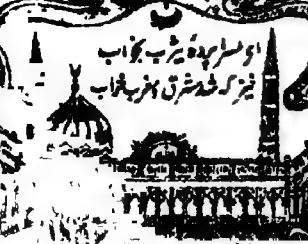 ای بسرا پردهٔ یثرب بخواب
خیز که شد مشرق و مغرب خراب